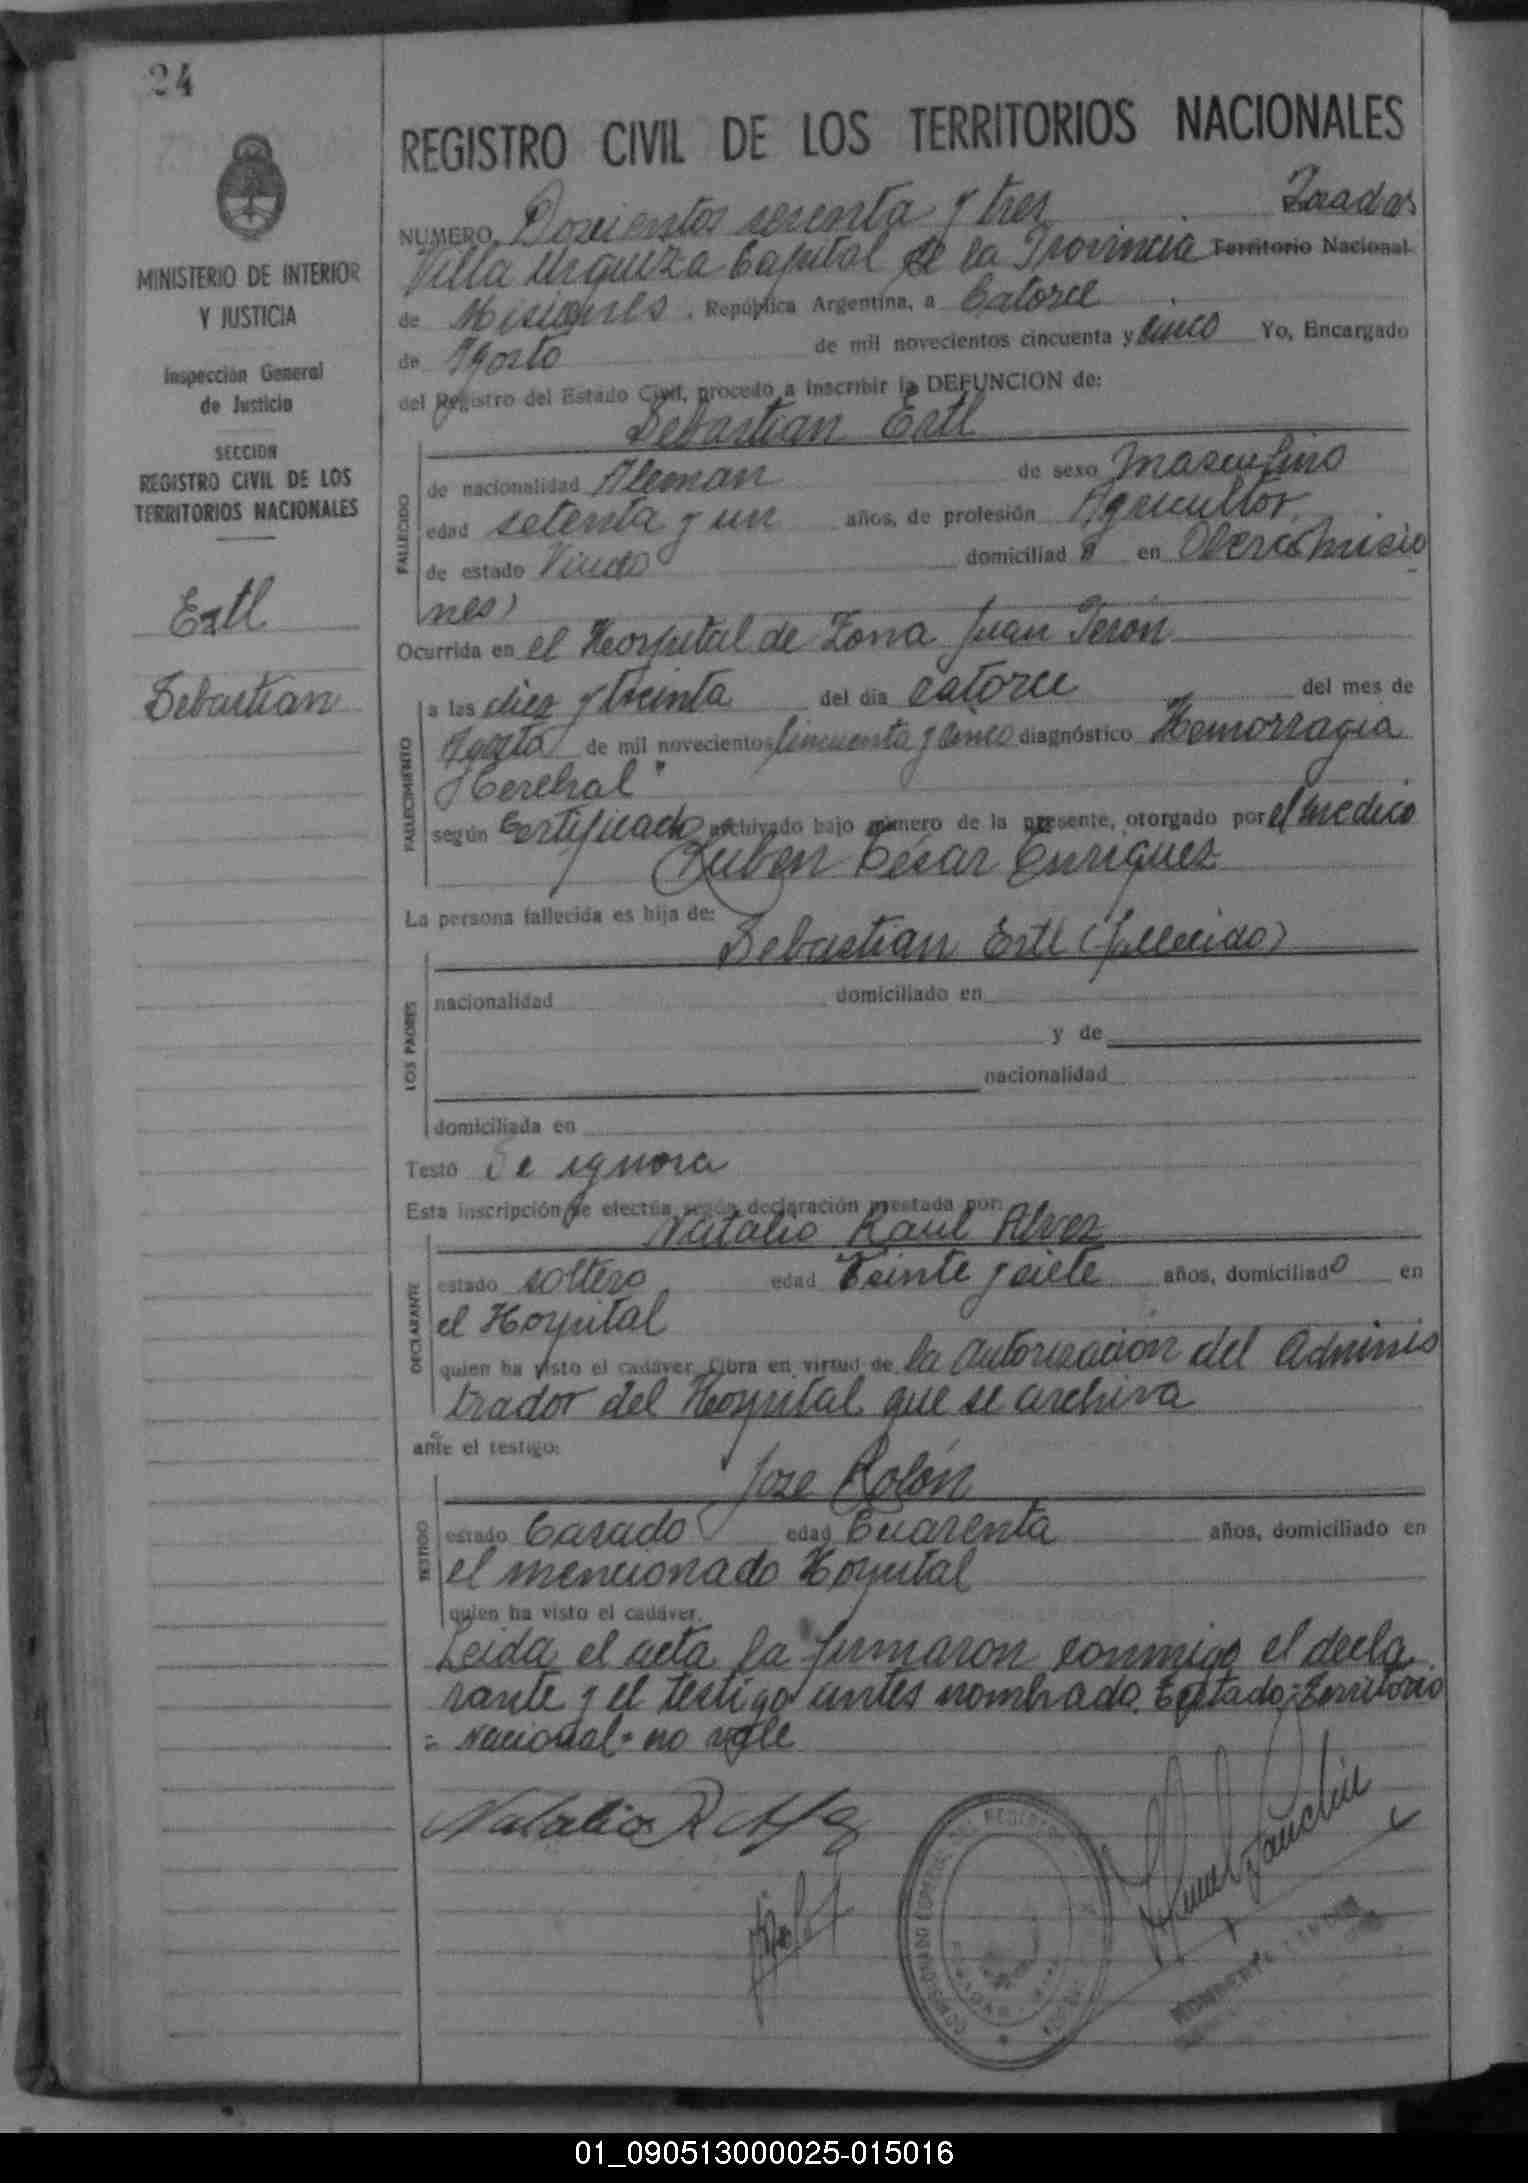 24
MINISTERIO DE INTERIOR
Y JUSTICIA
Inspección General
de Justicia
SECCION
REGISTRO CIVIL DE LOS
TERRITORIOS NACIONALES
Ertl
Sebastian
REGISTRO CIVIL DE LOS TERRITORIOS NACIONALES
NUMERO Doscientos setenta y tres
Villa Urquiza Capital de la Provincia Territorio Nacional
de Misiones, República Argentina, a Catorce
de Agosto de mil novecientos cincuenta y cinco Yo, Encargado
del Registro del Estado Civil, procedo a inscribir la DEFUNCION de:
Sebastian Ertl
FALLECIDO
de nacionalidad Aleman de sexo Masculino
edad setenta y un años, de profesión Agricultor
de estado Viudo domiciliado en Oberá Misio
nes)
Ocurrida en el Hospital de Zona Juan Peron
FALLECIMIENTO
a las diez y treinta del día catorce del mes de
Agosto de mil novecientos cincuenta y cinco diagnóstico Hemorragia
Cerebral"
según Certificado archivado bajo número de la presente, otorgado por el medico
Ruben César Enriquez
La persona fallecida es hija de:
Sebastian Ertl (fallecido)
LOS PADRES
nacionalidad domiciliado en
y de
nacionalidad
domiciliada en
Testó Se ignora
Esta inscripción se efectúa según declaración prestada por:
Natalio Raul Alvez
DECLARANTE
estado soltero edad Veinte y siete años, domiciliado en
el Hospital
quien ha visto el cadáver. Obra en virtud de la autorización del Adminis
trador del Hospital que se archiva
ante el testigo:
Jose Rolón
TESTIGO
estado Casado edad Cuarenta años, domiciliado en
el mencionado Hospital
quien ha visto el cadáver.
Leida el acta la firmaron conmigo el decla
rante y el testigo antes nombrado. Testado: Territorio
= Nacional = no vale
Natalio R Alvez
01_090513000025-015016